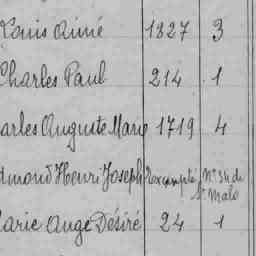 Louis Aimé 1827 3
Charles Paul 214 1
arles Auguste Marie 1719 4
dmond Henri Joseph Rexempté N° 34 de
St Malo
Marie Ange Désiré 24 1